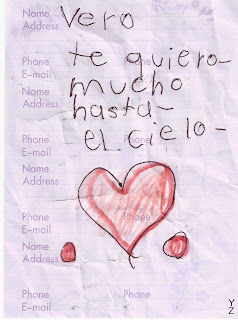 Name
Address
Vero
te quiero-
Phone
E-mail
mucho
Name
Address
hasta-
Phone
E-mail
Phone
EL cielo-
Name
Address
Phone
E-mail
Phone
Name
Address
Phone
E-mail
Phone
Y
Z